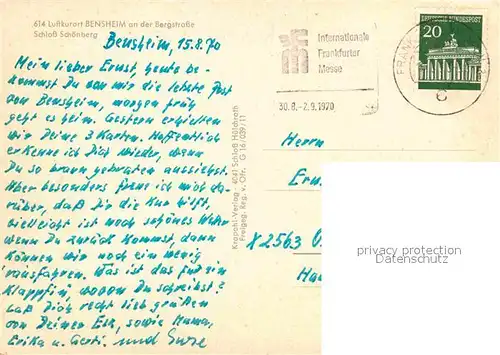 614 Luftkurort BENSHEIM an der Bergstraße
Schloß Schönberg
Bensheim, 15.8.70
Mein lieber Ernst, heute be-
kommst Du von mir die letzte Post
von Bensheim, morgen früh
geht es heim. Gestern erhielten
wir Deine 3 Karten. Hoffentlich
erkenne ich Dich wieder, wenn
Du so braun gebraten aussiehst.
Aber besonders freue ich mich da-
rüber, daß Dir die Kur hilft,
vielleicht ist noch schönes Wetter
wenn Du zurück kommst, dann
können wir noch ein wenig
rausfahren. Was ist das für ein
Klappfix, wovon Du schreibst?
Laß Dich recht lieb grüßen
von Deinen sowie Mama,
Erika u. Gerti. und
Kropohl-Verlag · 4041 Schloß Hülchrath
Freigeg. Reg. v. Ofr. G 16/039/11
Internationale
Frankfurter
Messe
30.8.-2.9.1970
DEUTSCHE BUNDESPOST
20
FRAN
c
Herrn
Ern
X 2563
Ha
privacy protection
Datenschutz